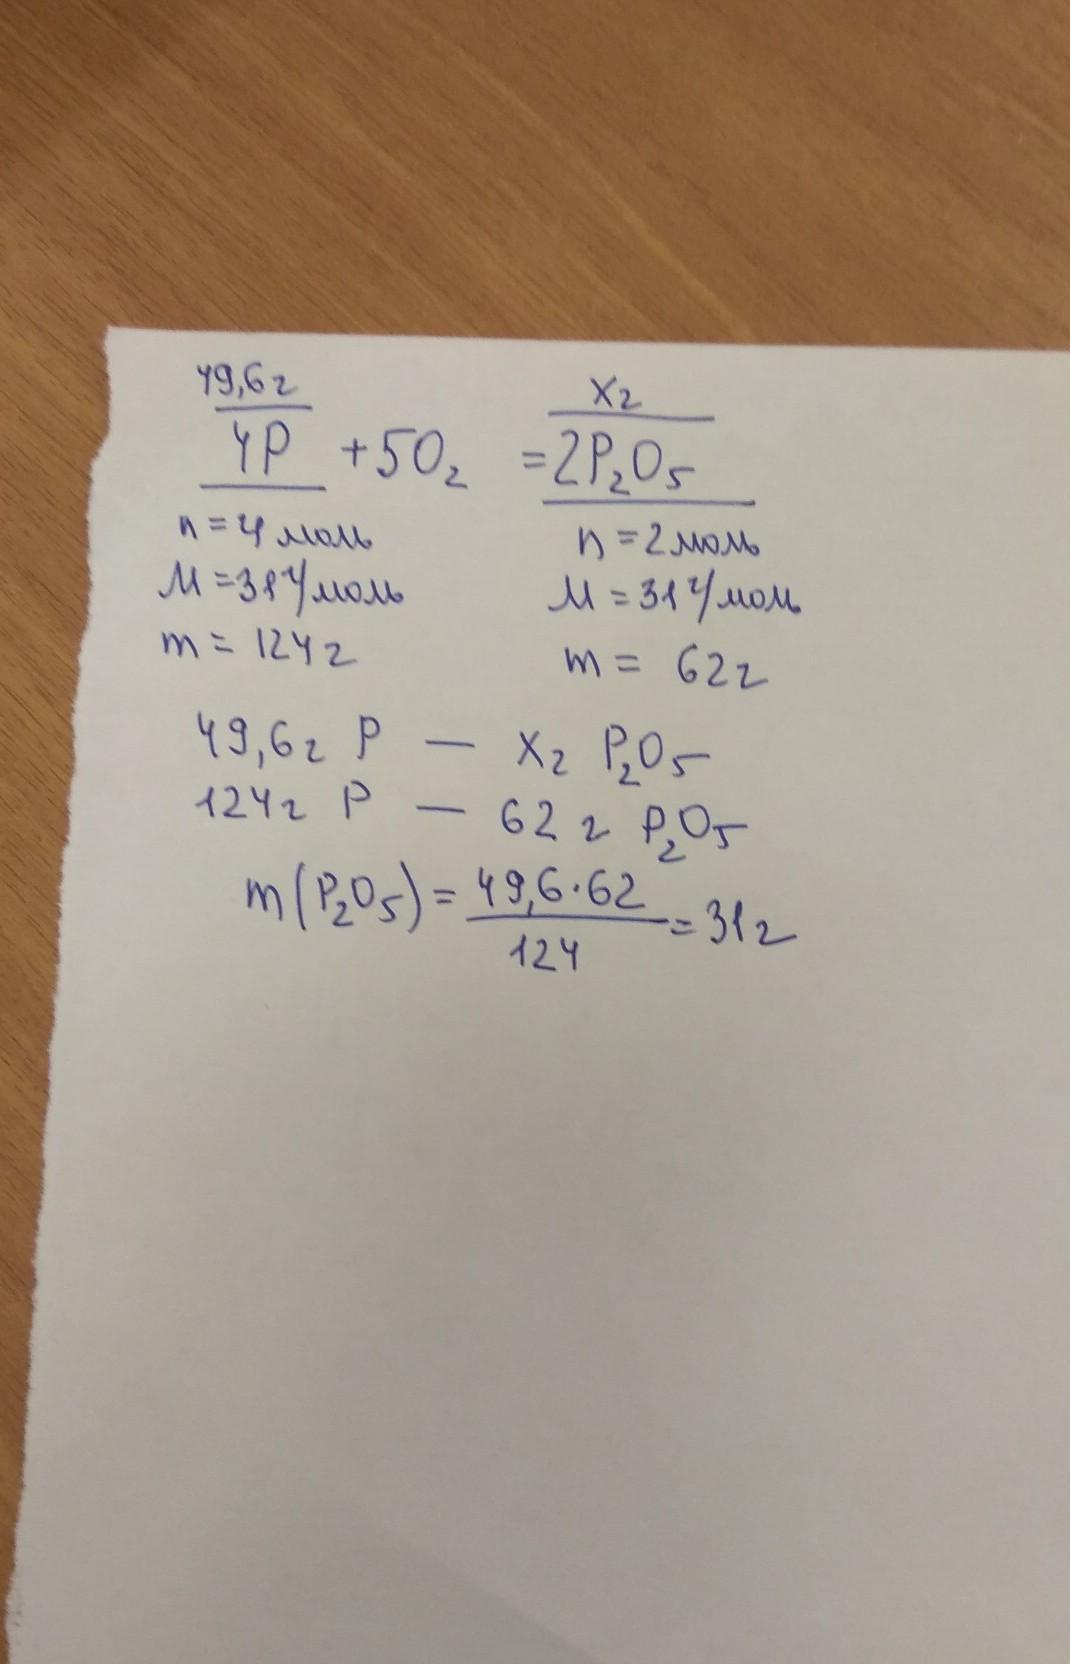 49,6г xг
4P + 5O₂ = 2P₂O₅
n = 4 моль n = 2 моль
M = 31 г/моль M = 31 г/моль
m = 124 г m = 62 г
49,6 г P — x г P₂O₅
124 г P — 62 г P₂O₅
m(P₂O₅) = 49,6·62 / 124 = 31 г